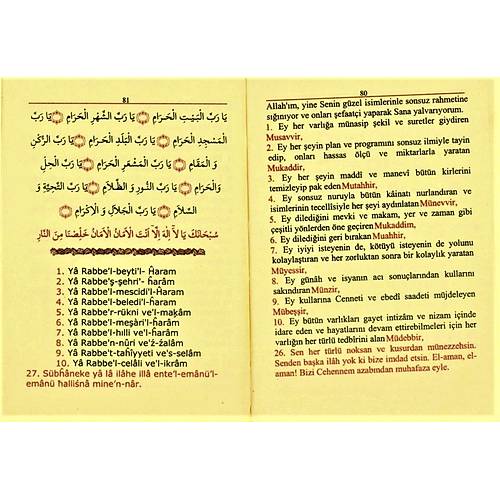 80
Allah'ım, yine Senin güzel isimlerinle sonsuz rahmetine
sığınıyor ve onları şefaatçi yaparak Sana yalvarıyorum.
1. Ey her varlığa münasip şekil ve suretler giydiren
Musavvir,
2. Ey her şeyin plan ve programını sonsuz ilmiyle tayin
edip, onları hassas ölçü ve miktarlarla yaratan
Mukaddir,
3. Ey her şeyin maddî ve manevî bütün kirlerini
temizleyip pak eden Mutahhir,
4. Ey sonsuz nuruyla bütün kâinatı nurlandıran ve
isimlerinin tecellîsiyle her şeyi aydınlatan Münevvir,
5. Ey dilediğini mevki ve makam, yer ve zaman gibi
çeşitli yönlerden öne geçiren Mukaddim,
6. Ey dilediğini geri bırakan Muahhir,
7. Ey iyiyi isteyenin de, kötüyü isteyenin de yolunu
kolaylaştıran ve her zorluktan sonra bir kolaylık yaratan
Müyessir,
8. Ey günâh ve isyanın acı sonuçlarından kullarını
sakındıran Münzir,
9. Ey kullarına Cenneti ve ebedî saadeti müjdeleyen
Mübeşşir,
10. Ey bütün varlıkları gayet intizâm ve nizam içinde
idare eden ve hayatlarını devam ettirebilmeleri için her
varlığın her türlü tedbirini alan Müdebbir,
26. Sen her türlü noksan ve kusurdan münezzehsin.
Senden başka ilâh yok ki bize imdad etsin. El-aman, el-
aman! Bizi Cehennem azabından muhafaza eyle.
81
يَا رَبَّ الْبَيْتِ الْحَرَامِ يَا رَبَّ الشَّهْرِ الْحَرَامِ يَا رَبَّ
الْمَسْجِدِ الْحَرَامِ يَا رَبَّ الْبَلَدِ الْحَرَامِ يَا رَبَّ الرُّكْنِ
وَ الْمَقَامِ يَا رَبَّ الْمَشْعَرِ الْحَرَامِ يَا رَبَّ الْحِلِّ
وَالْحَرَامِ يَا رَبَّ النُّورِ وَ الظَّلَامِ يَا رَبَّ التَّحِيَّةِ وَ
السَّلَامِ يَا رَبَّ الْجَلَالِ وَ الْاِكْرَامِ
سُبْحَانَكَ يَا لَا اِلٰهَ اِلَّا اَنْتَ الْاَمَانُ الْاَمَانُ خَلِّصْنَا مِنَ النَّارِ
1. Yâ Rabbe'l-beyti'l- Ĥaram
2. Yâ Rabbe'ş-şehri'- ĥarâm
3. Yâ Rabbe'l-mescidi'l-Ĥaram
4. Yâ Rabbe'l-beledi'l-ĥarâm
5. Yâ Rabbe'r-rükni ve'l-maķâm
6. Yâ Rabbe'l-meşàri'l-ĥarâm
7. Yâ Rabbe'l-hılli ve'l-ĥarâm
8. Yâ Rabbe'n-nûri ve'ž-žalâm
9. Yâ Rabbe't-taĥiyyeti ve's-selâm
10. Yâ Rabbe'l-celâli ve'l-ikrâm
27. Sübĥâneke yâ lâ ilâhe illâ ente'l-emânü'l-
emânü hallisñâ mine'n-nâr.